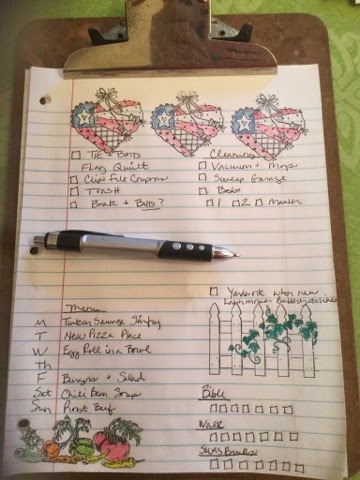 Tie + Bind
Flag Quilt
Clip + File Coupons
Trash
Bank + Bills?
Cleaning
Vacuum + Mops
Sweep Garage
Beds
1 2 Master
Yardwork when new
Menu
M Turkey Sausage Stirfry
T New Pizza Place
W Egg Roll in a Bowl
Th
F Burgers + Salad
Sat Chili Bean Soup
Sun Roast Beef
Bible
Walk